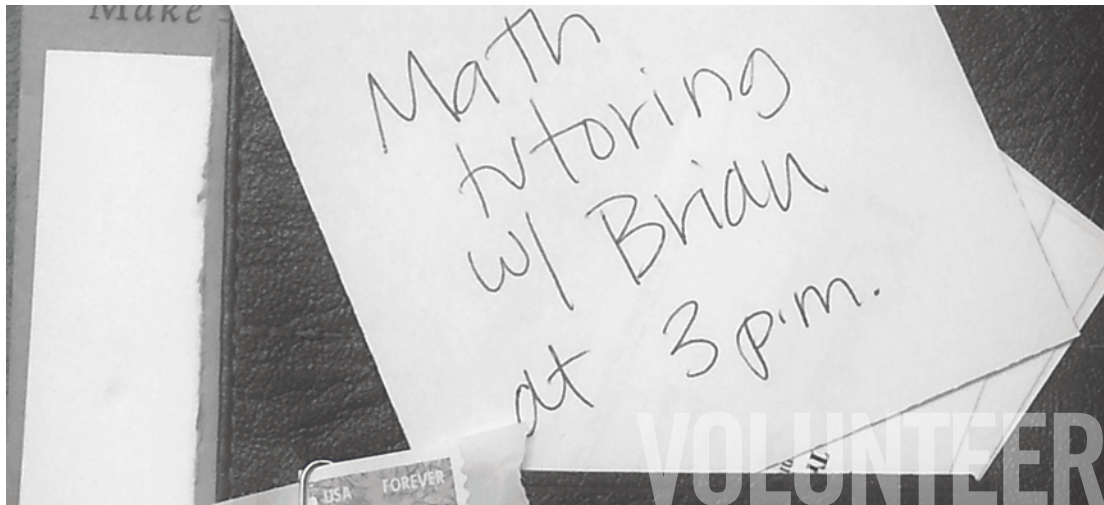 Make
Math
tutoring
w/ Brian
at 3 p.m.
USA FOREVER
VOLUNTEER